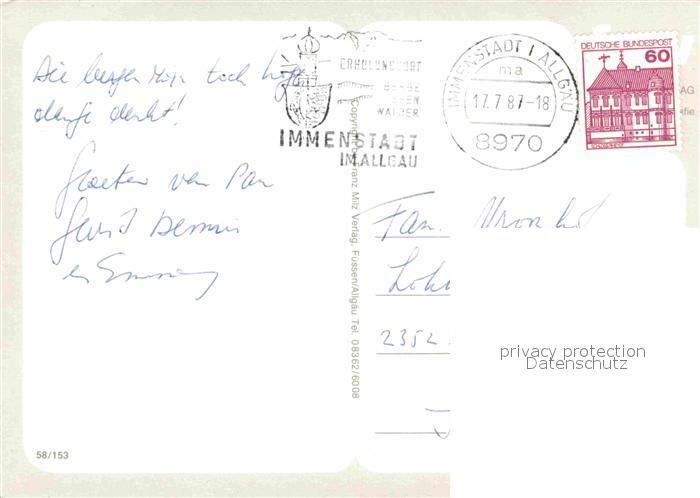 Die bergen zijn toch hoger
dan je denkt!
Groeten van Pau
Gerrit Dennis
en
ERHOLUNGSORT
BERGE
SEEN
WÄLDER
IMMENSTADT
IM ALLGÄU
IMMENSTADT I ALLGÄU
ma
17.7.87-18
8970
DEUTSCHE BUNDESPOST
60
AG
Copyright by Franz Milz Verlag, Füssen/Allgäu Tel. 08362/6008
Fam.
2352
privacy protection
Datenschutz
58/153